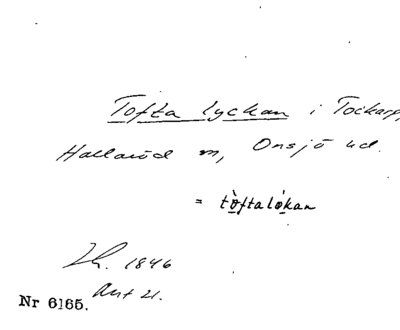 Tofta lyckan i Tockarp,
Hallaröd m, Onsjö hd.
= tòftalókan
1846
Nr 6165.